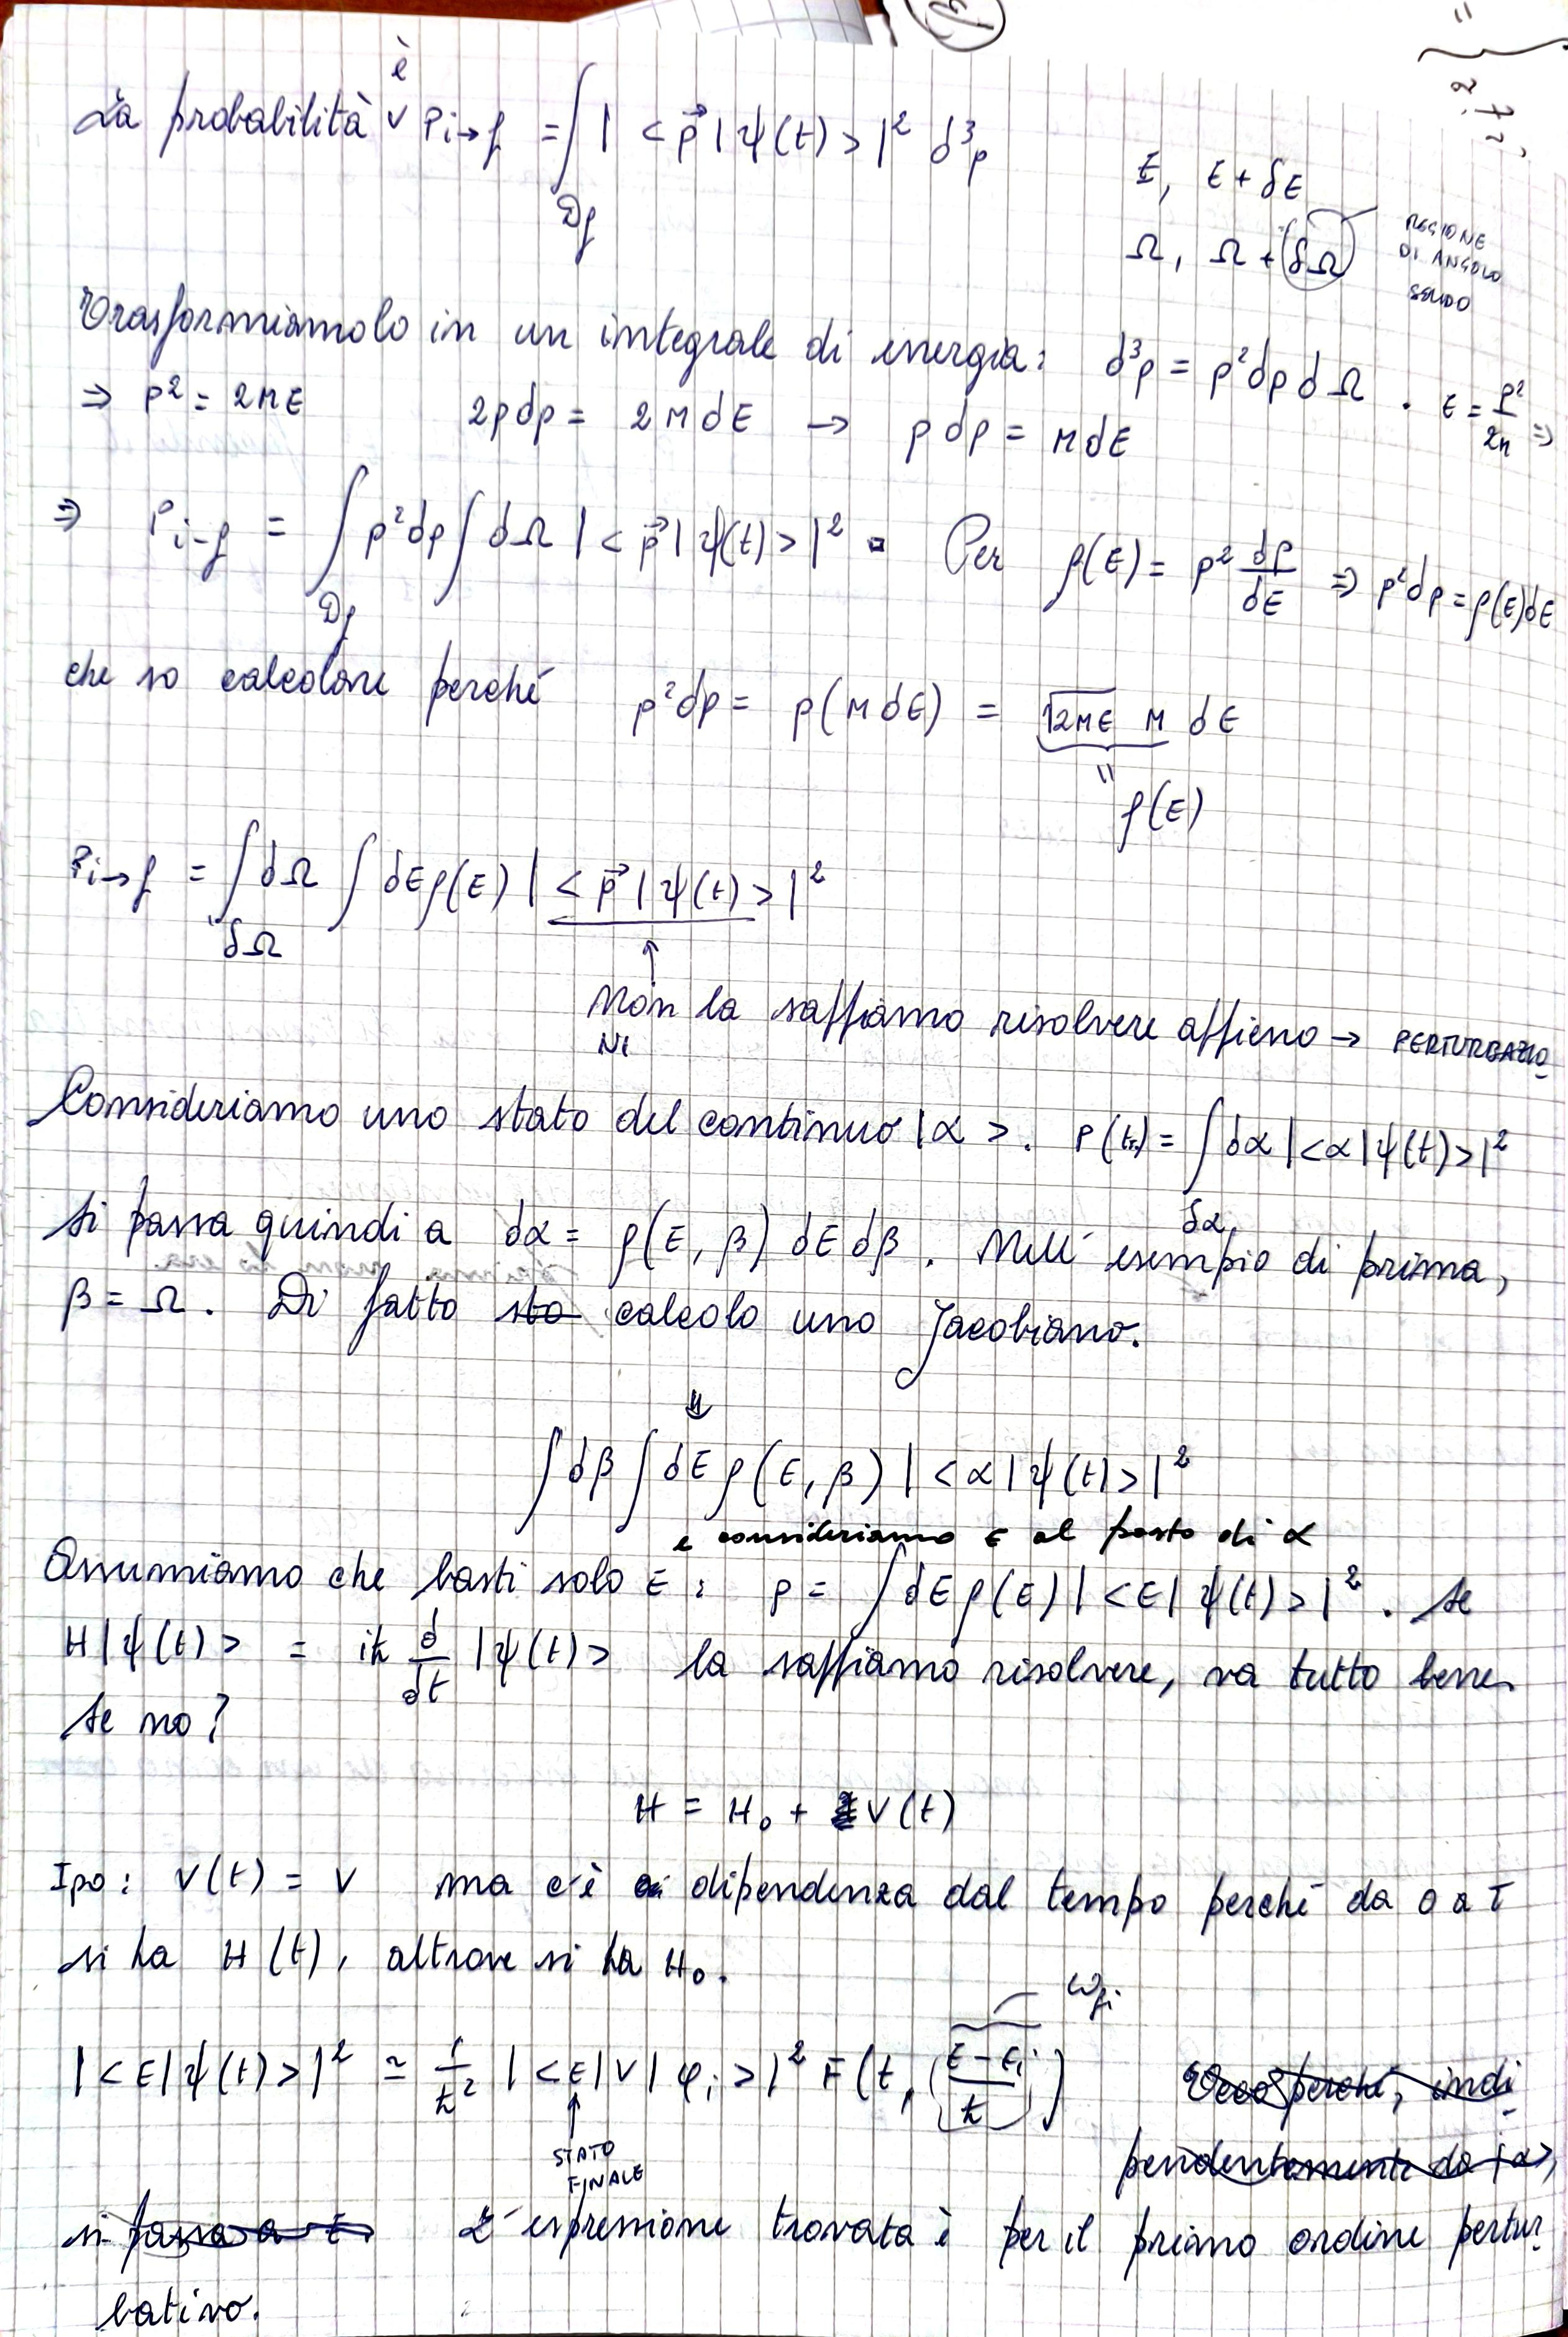 La probabilità è P_{i→f} = ∫_{D_f} |<p⃗|ψ(t)>|² d³p
E, E + δE
Ω, Ω + δΩ
REGIONE
DI ANGOLO
SOLIDO
Trasformiamolo in un integrale di energia: d³p = p² dp dΩ . E = p²/2M ⇒
⇒ p² = 2ME 2p dp = 2M dE → p dp = M dE
⇒ P_{i→f} = ∫_{D_f} p² dp ∫ dΩ |<p⃗|ψ(t)>|² . Per ρ(E) = p² dp/dE ⇒ p² dp = ρ(E) dE
che so calcolare perché p² dp = p(M dE) = √2ME M dE
" ρ(E)
P_{i→f} = ∫_{δΩ} dΩ ∫ dE ρ(E) |<p⃗|ψ(t)>|²
↑
Non la sappiamo risolvere appieno → PERTURBAZIO-
NI
Consideriamo uno stato del continuo |α>. P(t) = ∫_{δα} dα |<α|ψ(t)>|²
Si passa quindi a dα = ρ(E, β) dE dβ . Nell'esempio di prima,
β = Ω. Di fatto sto calcolo uno Jacobiano.
⇓
∫ dβ ∫ dE ρ(E, β) |<α|ψ(t)>|²
e consideriamo E al posto di α
Assumiamo che basti solo E : P = ∫ dE ρ(E) |<E|ψ(t)>|² . Se
H|ψ(t)> = iħ d/dt |ψ(t)> la sappiamo risolvere, va tutto bene.
Se no?
H = H₀ + V(t)
Ipo: V(t) = V ma c'è dipendenza dal tempo perché da 0 a T
si ha H(t), altrove si ha H₀.
ω_{fi}
|<E|ψ(t)>|² ≃ 1/ħ² |<E|V|φ_i>|² F(t, (E − E_i)/ħ) Ecco perché, indi-
↑
STATO
FINALE
pendentemente da |α>,
si passa a E. L'espressione trovata è per il primo ordine pertur-
bativo.